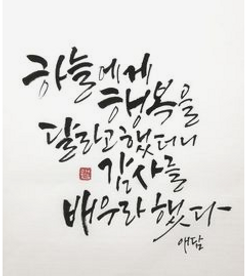 하늘에게
행복을
달라고했더니
감사를
배우라 했다
애담